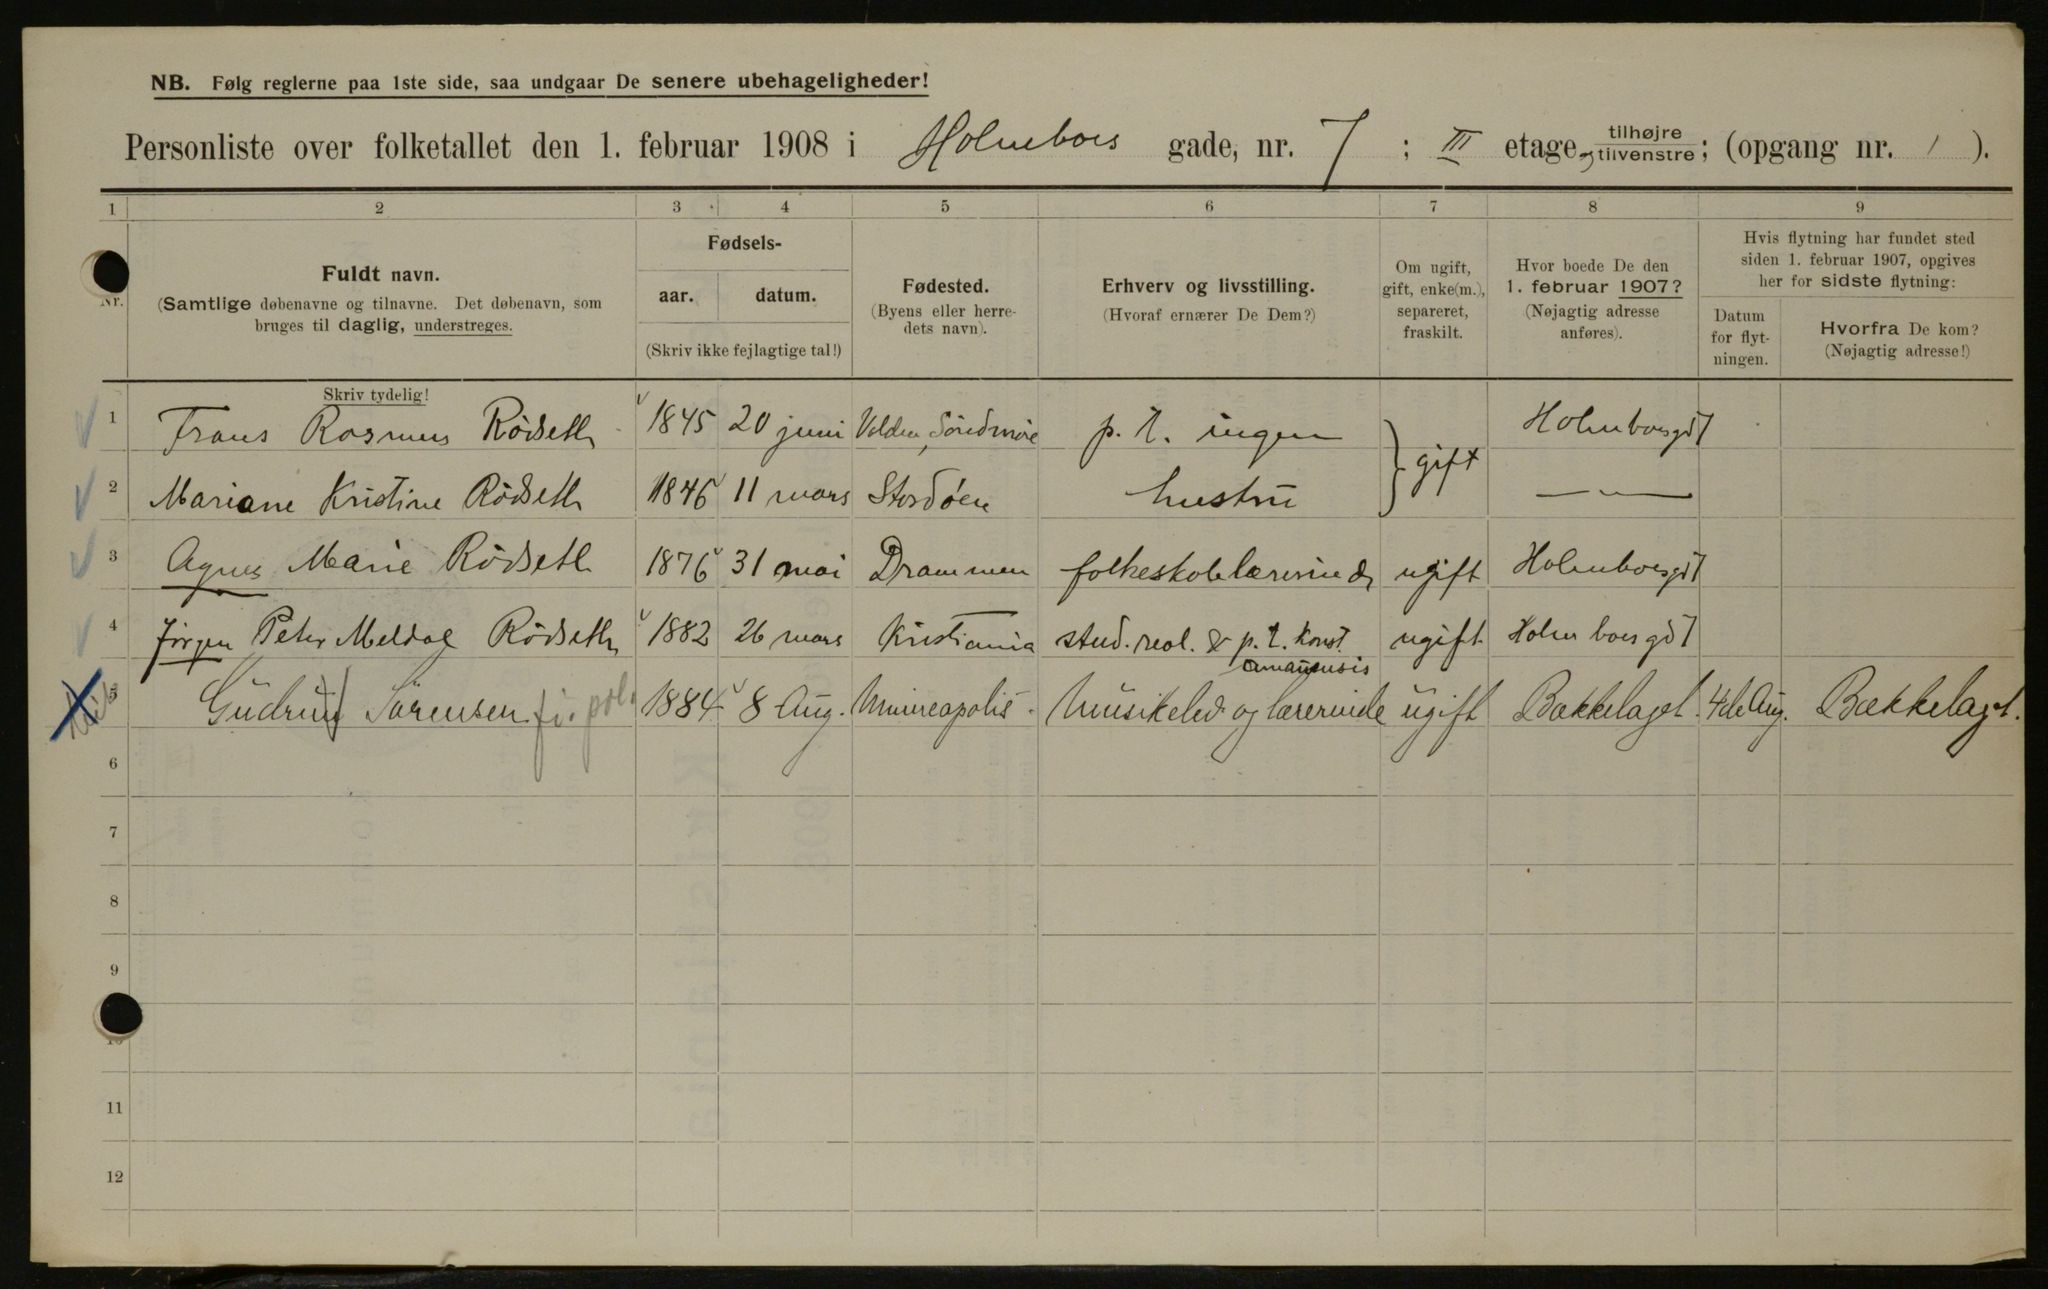 NB. Følg reglerne paa 1ste side, saa undgaar De senere ubehageligheder!
Personliste over folketallet den 1. februar 1908 i Holmboes gade, nr. 7 ; III etage, tilhøjre tilvenstre; (opgang nr. 1 ).
1 2 3 4 5 6 7 8 9
Nr. Fuldt navn. (Samtlige døbenavne og tilnavne. Det døbenavn, som bruges til daglig, understreges.
Fødsels- aar. datum. (Skriv ikke fejlagtige tal!)
Fødested. (Byens eller herredets navn).
Erhverv og livsstilling. (Hvoraf ernærer De Dem?)
Om ugift, gift, enke(m.), separeret, fraskilt.
Hvor boede De den 1. februar 1907? (Nøjagtig adresse anføres).
Hvis flytning har fundet sted siden 1. februar 1907, opgives her for sidste flytning:
Datum for flytningen. Hvorfra De kom? (Nøjagtig adresse!)
Skriv tydelig!
1 Frans Rasmus Rödseth 1845 20 juni Volden, Söndmöre p. t. ingen gift Holmboesgd 7
2 Mariane Kristine Rödseth 1846 11 mars Stordöen hustru — " —
3 Agnes Marie Rödseth 1876 31 mai Drammen folkeskolelærerinde ugift Holmboesgd 7
4 Jørgen Peter Meldal Rödseth 1882 26 mars Kristiania stud. real. & p. t. konst. amanuensis ugift Holmboesgd 7
5 Gudrun Sörensen 1884 8 Aug. Minneapolis Musikelev og lærerinde ugift Bækkelaget. 4de Aug. Bækkelaget.
6
7
8
9
10
11
12